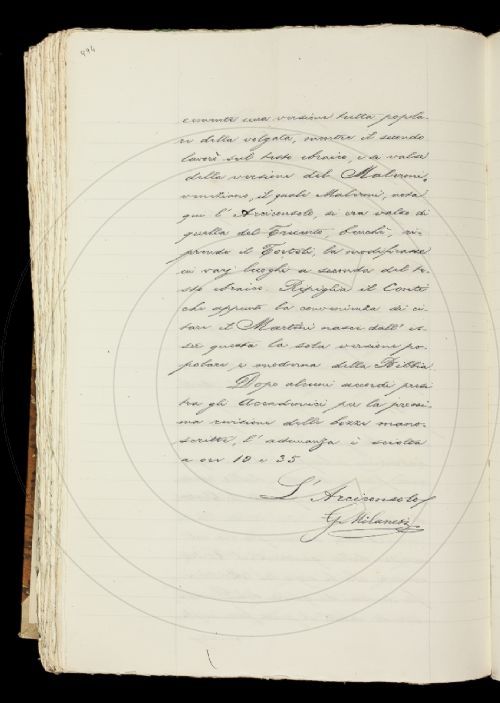 494
una versione tutta popola-
re della volgata, mentre il secondo
lavorò sul testo ebraico, e si valse
della versione del Malermi,
veneziano, il quale Malermi, nota
qui l'Arciconsolo, si era valso di
quella del Trecento, benchè, ri-
prende il Tortoli, la modificasse
in varj luoghi a seconda del te-
sto ebraico. Ripiglia il Conti
che appunto la convenienza di ci-
tare il Martini nasce dall'es-
ser questa la sola versione po-
polare e moderna della Bibbia.
Dopo alcuni accordi presi
tra gli Accademici per la prossi-
ma revisione delle bozze mano-
scritte, l'adunanza è sciolta
a ore 10 e 35.
L'Arciconsolo
G. Milanesi